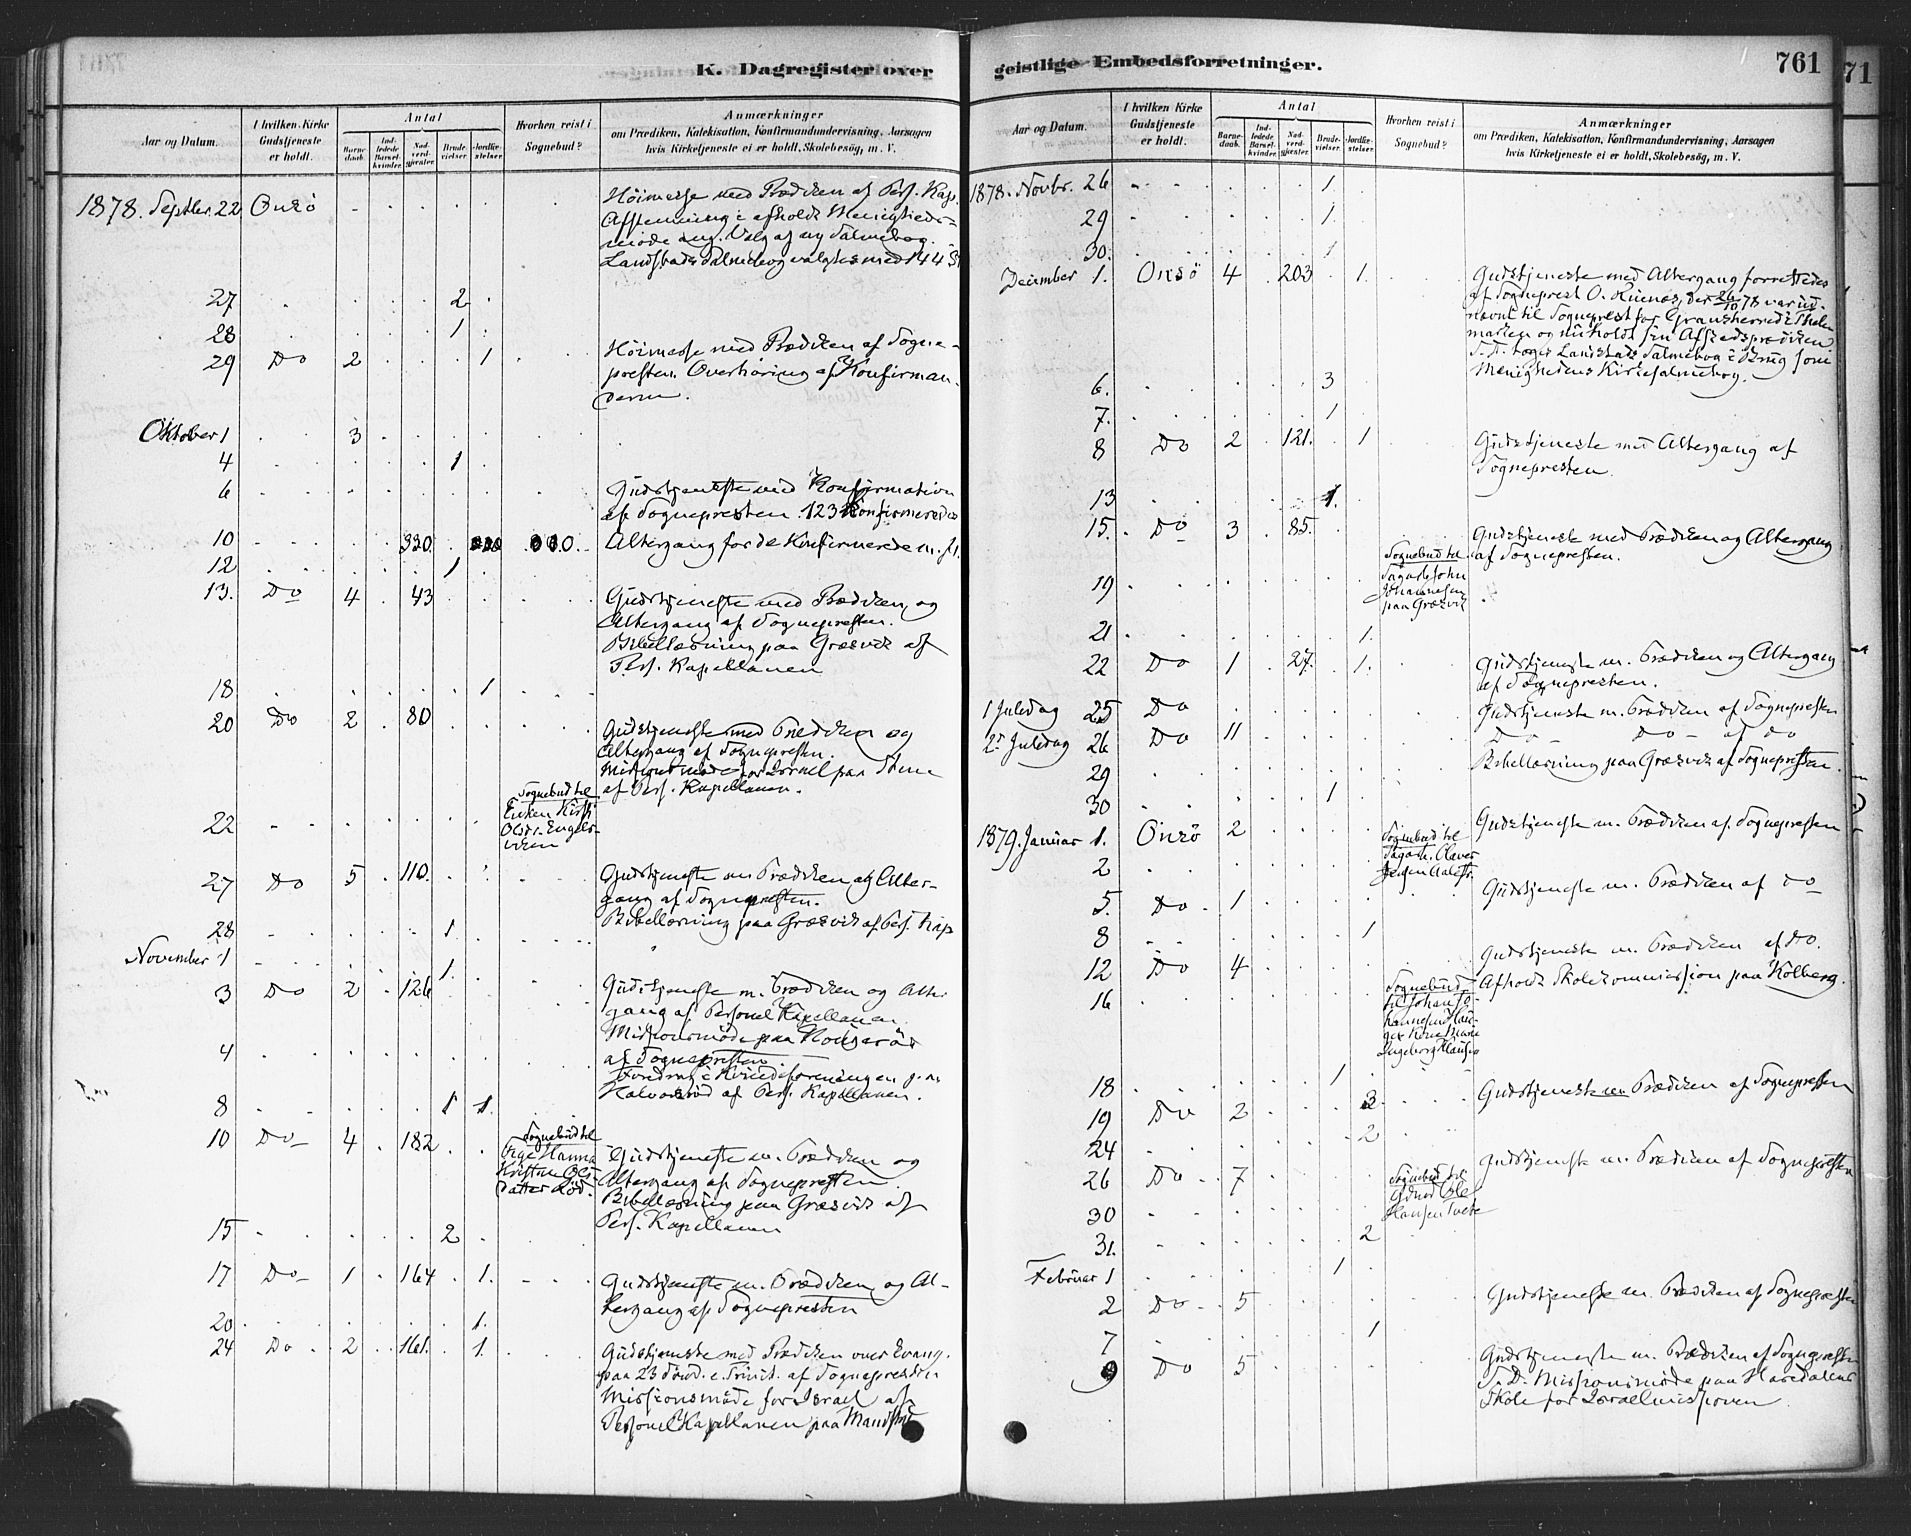 K. Dagregister over
Aar og Datum.
I hvilken Kirke Gudstjeneste er holdt.
Antal
Barnedaab. Indledede Barselkvinder. Nadverdgjester. Brudevielser. Jordfæstelser.
Hvorhen reist i Sognebud?
Anmærkninger
om Prædiken, Katekisation, Konfirmandundervisning, Aarsagen
hvis Kirketjeneste ei er holdt, Skolebesøg, m. V.
1878. Septbr. 22 Onsö Höimesse med Prædiken af Pers. Kap.
Afstemning i afholdt Menigheds-
möde ang. Valg af ny Salmebog.
Landstads Salmebog valgtes med 144 St
27 2
28 1
29 Do 2 1 Höimesse med Prædiken af Sogne-
presten. Overhöring af Konfirman-
derne.
Oktober 1 3
4 1
6 Gudstjeneste med Konfirmation
af Sognepresten. 123 Konfirmeredes
10 330 Altergang for de Konfirmerede m. fl.
12 1
13. Do 4 43 Gudstjeneste med Prædiken og
Altergang af Sognepresten.
Bibellæsning paa Græsvik af
Pers. Kapellanen
18 1
20 Do 2 80 Gudstjeneste med Prediken og
Altergang af Sognepresten.
Missionsmöde for Israel paa
af Pers. Kapellanen.
22 Sognebud til
Enken Kirsti
Olsd. Engels-
viken
27 Do 5 110. Gudstjeneste m. Prædiken og Alter-
gang af Sognepresten.
Bibellæsning paa Græsvik af Pers. Kap
28 1.
November 1 1.
3 Do 2 126 Gudstjeneste m. Prædiken og Alter
gang af Personel Kapellanen.
Missionsmöde paa
4 af Sognepresten
Foredrag i Kvindeforeningen paa
Halvorsröd af Pers. Kapellanen.
8 1 1.
10 Do 4 182 Sognebud til
Pige Hanna
Kristine Ols
datter Röd.
Gudstjeneste m. Prædiken og
Altergang af Sognepresten.
Bibellæsning paa Græsvik af
Pers. Kapellanen
15 2
17 Do 1 164 1. Gudstjeneste m. Prædiken og Al-
tergang af Sognepresten
20 1.
24 Do 2 161. 1. Gudstjeneste med Prædiken over Evang.
paa 23 Sönd. e. Trinit. af Sognepresten
Missionsmöde for Israel af
Personel Kapellanen paa
geistlige Embedsforretninger.
761
71
Aar og Datum.
I hvilken Kirke Gudstjeneste er holdt.
Antal
Barnedaab. Indledede Barselkvinder. Nadverdgjester. Brudevielser. Jordfæstelser.
Hvorhen reist i Sognebud?
Anmærkninger
om Prædiken, Katekisation, Konfirmandundervisning, Aarsagen
hvis Kirketjeneste ei er holdt, Skolebesøg, m. V.
1878. Novbr. 26 1
29 1
30. 1
December 1. Onsö 4 203 1. Gudstjeneste med Altergang forrettedes
af Sogneprest O. der 26/10 78 var ud-
nævnt til Sogneprest for Gransherred i Thele
marken og nu holdt sin Afskedsprædiken
S. D. toges Landstads Salmebog i Brug som
Menighedens Kirkesalmebog.
6. 3
7. 1
8 Do 2 121. 1 Gudstjeneste med Altergang af
Sognepresten.
13 1.
15. Do 3 85. Gudstjeneste med Prædiken og Altergang
af Sognepresten.
19 Sognebud til
John
Johannesen
paa Græsvik
21 1.
22 Do 1 27. 1. Gudstjeneste m. Prædiken og Altergang
af Sognepresten.
1 Juledag 25 Do Gudstjeneste m. Prædiken af Sognepresten
2n Juledag 26 Do 11 Do - Do - af do
29 Bibellæsning paa Græsvik af Sognepresten.
30 1
1879. Januar 1. Onsö 2 Gudstjeneste m. Prædiken af Sognepresten
2 Sognebud til
5. Do 1 Gudstjeneste m. Prædiken af do
8 1
12 Do 4 Gudstjeneste m. Prædiken af do.
16 Afholdt Skolekommission paa Kolberg.
Sognebud
til Johan Jo-
18 1
19 Do 2 3 Gudstjeneste m. Prædiken af Sognepresten
24 2
26 Do 7 Gudstjeneste m. Prædiken af Sognepresten
30 Sognebud til
Ole
Hansen Tvete
31. 2
Februar 1 1
2 Do 5 Gudstjeneste m. Prædiken af Sognepresten
7 1
9 Do 5 Gudstjeneste m. Prædiken af Sognepresten
S. D. Missionsmöde paa
Skole for Israelmissionen.